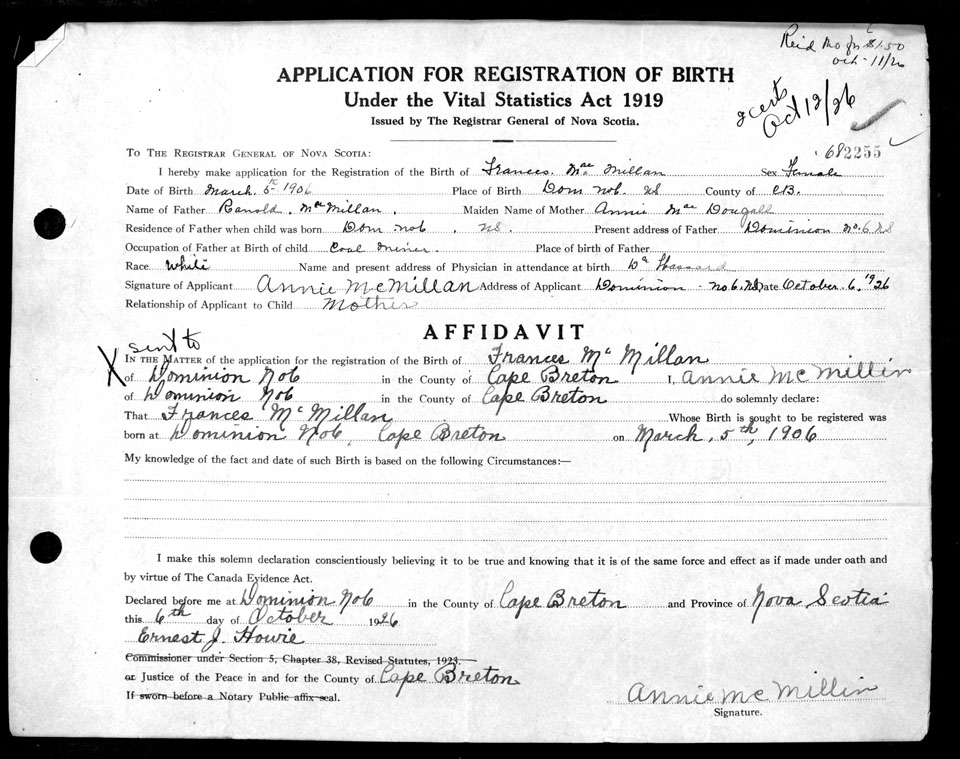 Reid Mo for $1.50
Oct-11/26
APPLICATION FOR REGISTRATION OF BIRTH
Under the Vital Statistics Act 1919
Issued by The Registrar General of Nova Scotia.
2 certs
Oct 12/26
682255
TO THE REGISTRAR GENERAL OF NOVA SCOTIA:
I hereby make application for the Registration of the Birth of Frances. Mac Millan Sex Female
Date of Birth March. 5th 1906 Place of Birth Dom No6. NS County of C.B.
Name of Father Ranold. MacMillan. Maiden Name of Mother Annie Mac Dougall
Residence of Father when child was born Dom No6. NS. Present address of Father Dominion No. 6 NS
Occupation of Father at Birth of child Coal Miner. Place of birth of Father
Race White Name and present address of Physician in attendance at birth Dr
Signature of Applicant Annie McMillan Address of Applicant Dominion - No6. NS Date October. 6. 1926
Relationship of Applicant to Child Mother
AFFIDAVIT
sent to
X IN THE MATTER of the application for the registration of the Birth of Frances Mc Millan
of Dominion No6 in the County of Cape Breton I, Annie McMillin
of Dominion No6 in the County of Cape Breton do solemnly declare:
That Frances McMillan Whose Birth is sought to be registered was
born at Dominion No6, Cape Breton on March, 5th, 1906
My knowledge of the fact and date of such Birth is based on the following Circumstances:—
I make this solemn declaration conscientiously believing it to be true and knowing that it is of the same force and effect as if made under oath and
by virtue of The Canada Evidence Act.
Declared before me at Dominion No6 in the County of Cape Breton and Province of Nova Scotia
this 6th day of October 1926
Ernest J. Howie
Commissioner under Section 5, Chapter 38, Revised Statutes, 1923.
or Justice of the Peace in and for the County of Cape Breton
If sworn before a Notary Public affix seal.
Annie McMillin
Signature.